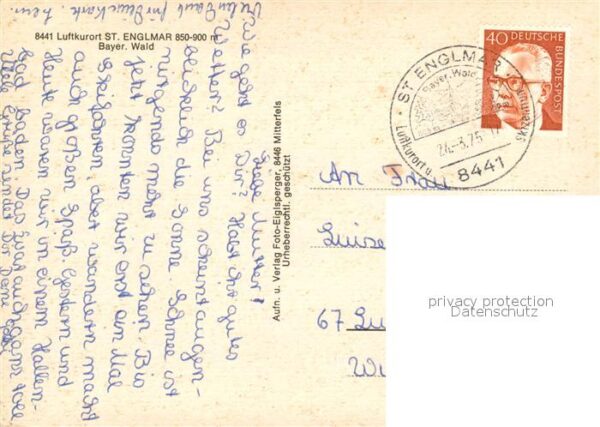 8441 Luftkurort ST. ENGLMAR 850-900 m
Bayer. Wald
Liebe Mutter!
Wie geht es Dir? Habt ihr gutes
Wetter? Bei uns scheint augen-
blicklich die Sonne. Schnee ist
nirgends mehr zu sehen. Bis
jetzt konnten wir erst ein Mal
skifahren, aber wandern macht
auch großen Spaß. Gestern und
heute waren wir in einem Hallen-
bad baden. Das war auch ganz toll
Viele Grüße sendet Dir Deine
Vielen Dank für
Aufn. u. Verlag Foto-Eiglsperger, 8446 Mitterfels
Urheberrechtl. geschützt
ST. ENGLMAR
Bayer. Wald
Luftkurort u.
24.-3.75
8441
40
DEUTSCHE
BUNDESPOST
An Frau
Luise
67 Lu
privacy protection
Datenschutz